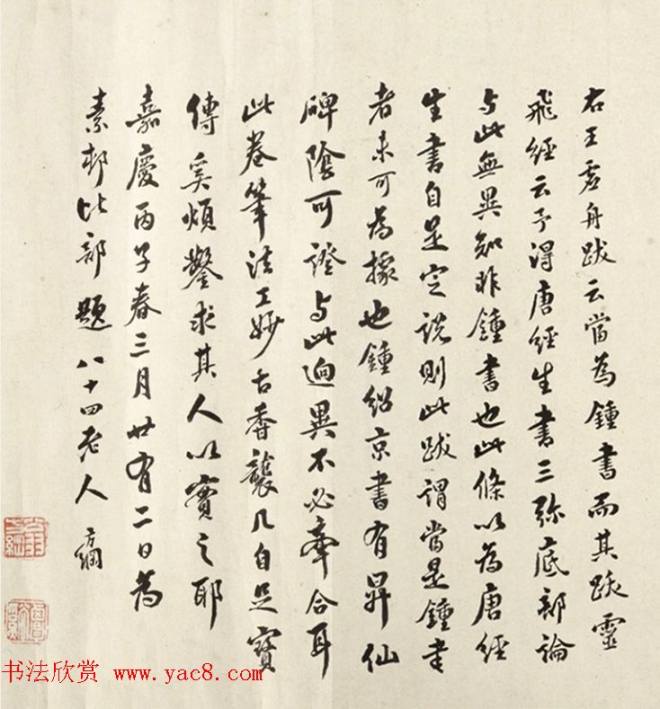 右王虚舟跋云當為鍾書而其跋靈
飛經云予得唐經生書三弥底部論
与此無異知非鍾書也此條以為唐經
生書自是定說則此跋謂當是鍾書
者未可為據也鍾紹京書有昇仙
碑陰可證与此迥異不必牽合耳
此卷筆法工妙古香襲几自足寶
傳奚煩鑿求其人以實之耶
嘉慶丙子春三月廿有二日為
素邨比部題八十四老人方綱
书法欣赏 www.yac8.com